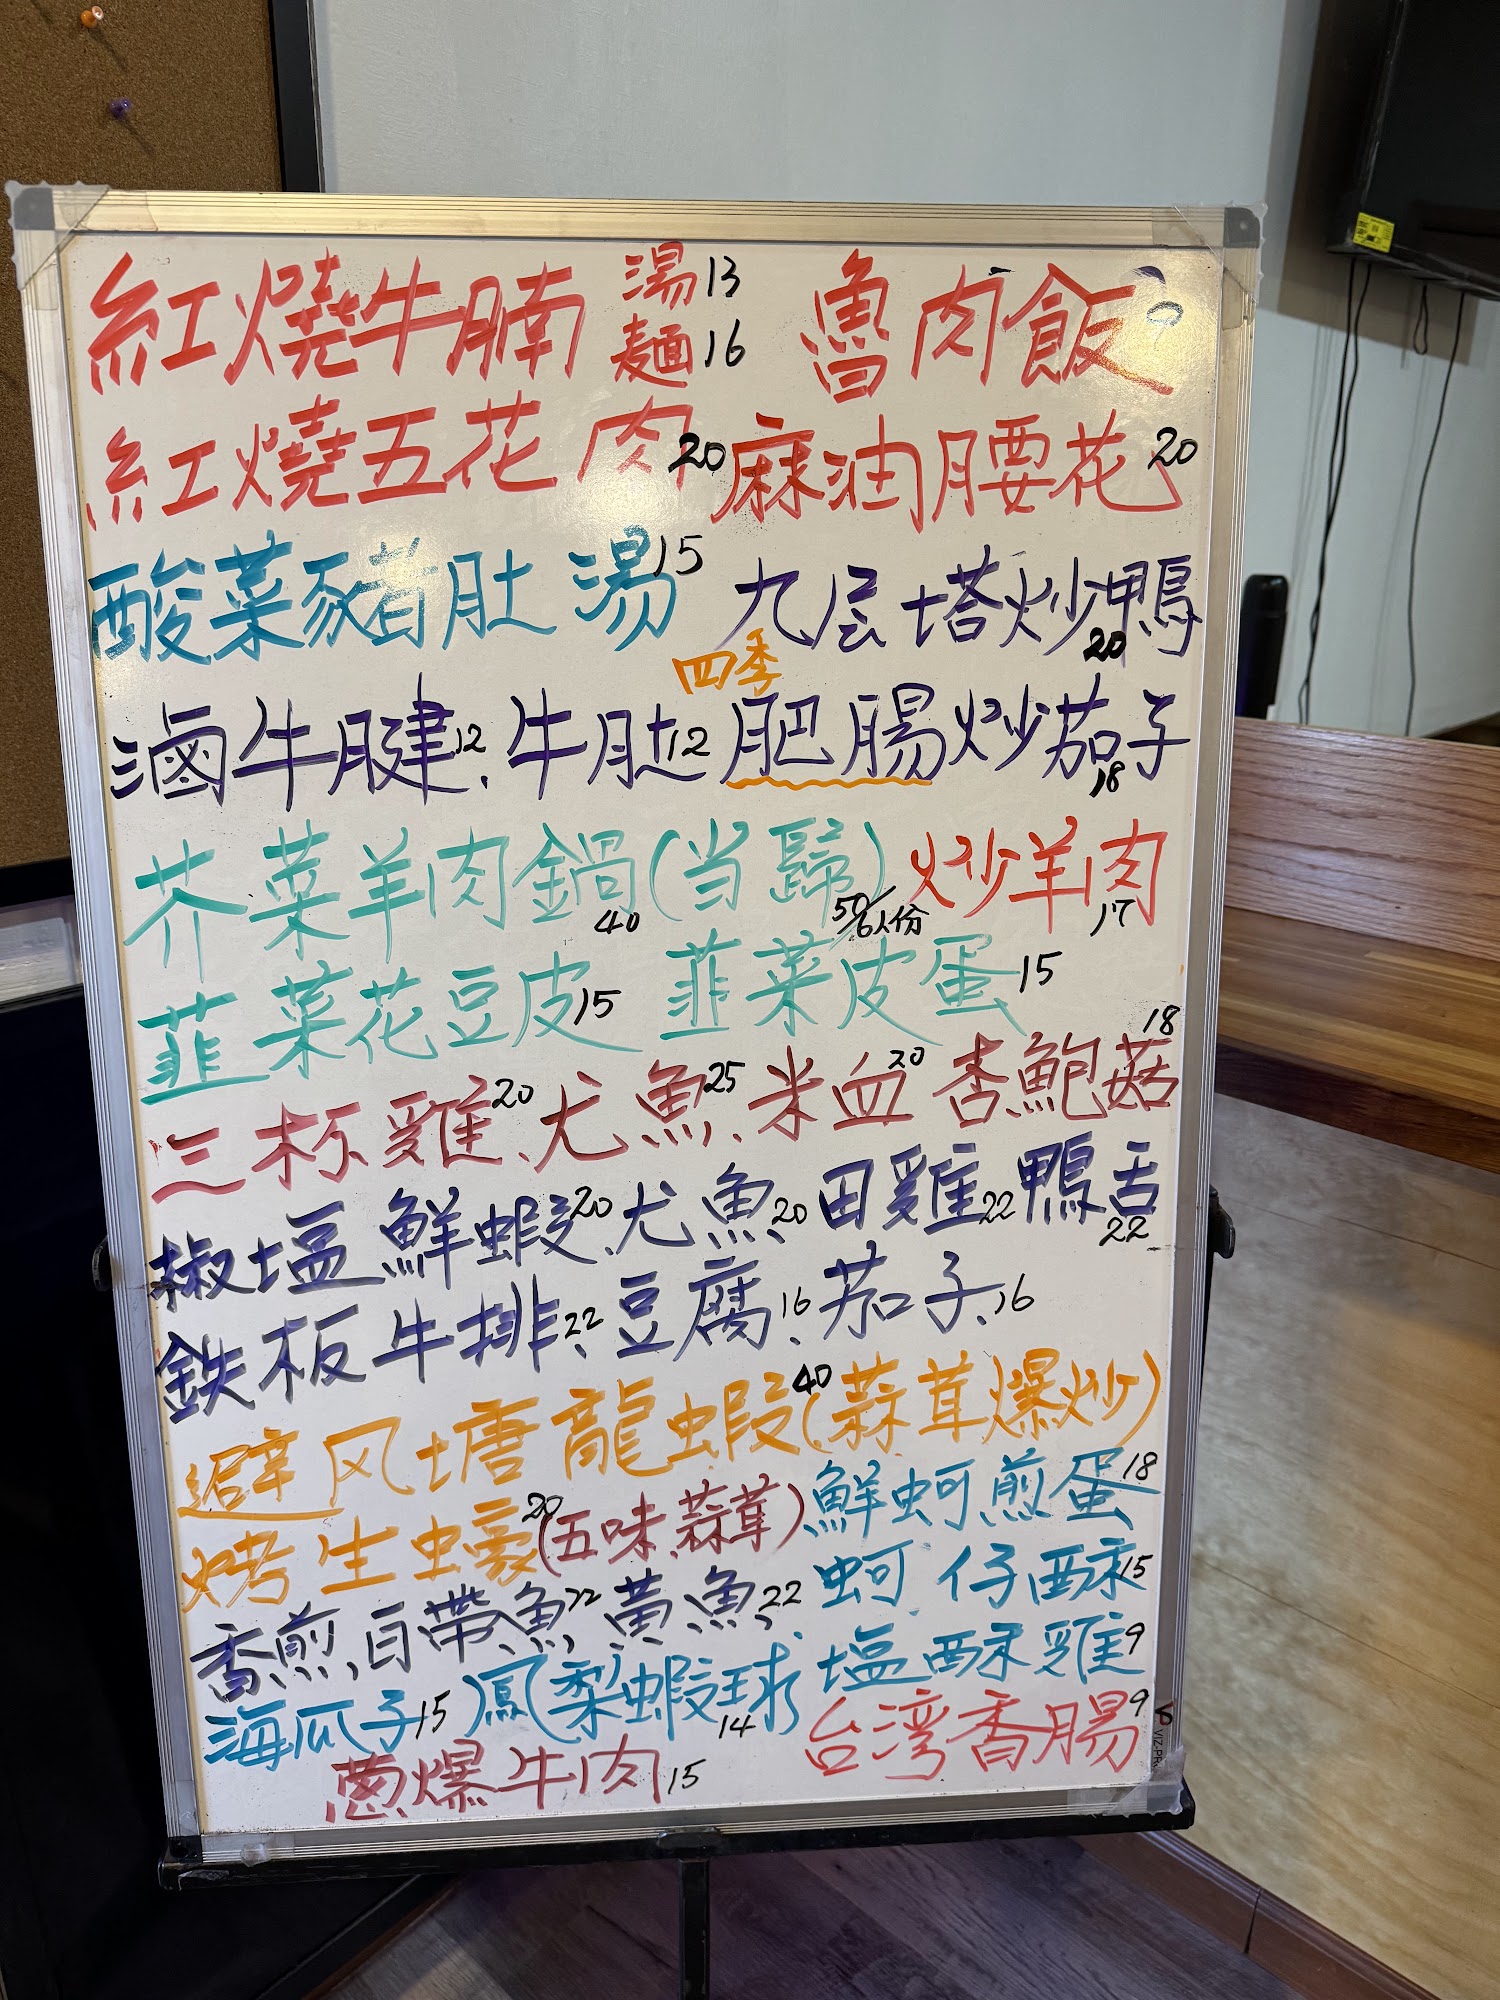 紅燒牛腩 湯13 麵16 魯肉飯 9
紅燒五花肉20 麻油腰花20
酸菜豬肚湯15 九层塔炒鴨20
滷牛腱12、牛肚12 四季肥腸炒茄子18
芥菜羊肉鍋40(当歸)50/6人份 炒羊肉17
韮菜花豆皮15 韮菜皮蛋15
三杯雞20、尤魚25、米血20 杏鮑菇18
椒塩鮮蝦20、尤魚20、田雞22 鴨舌22
鉄板牛排22、豆腐16、茄子16
避风塘龍蝦40(蒜茸爆炒)
烤生蠔20(五味、蒜茸) 鮮蚵煎蛋18
香煎白帶魚22 黃魚22 蚵仔酥15
海瓜子15 鳳梨蝦球14 塩酥雞9
葱爆牛肉15 台湾香腸9
VIZ-PR